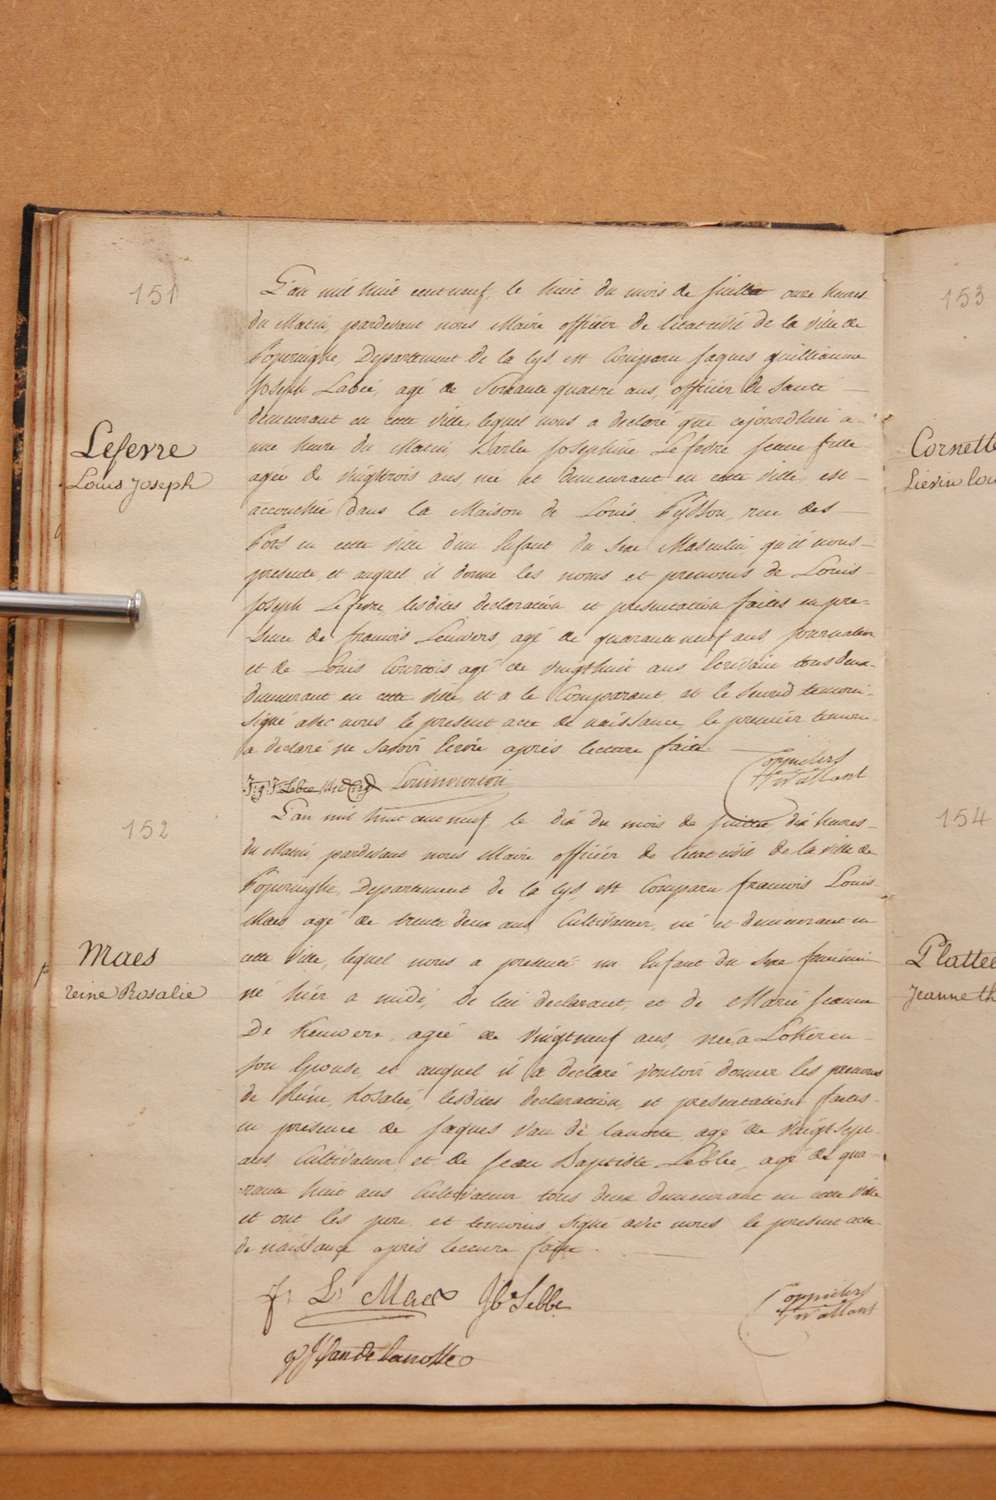 151
L'an mil huit cent neuf, le huit du mois de juillet onze heures
du Matin, pardevant nous Maire officier de l'etat civil de la ville de
Poperinghe, Departement de la Lys est Comparu Jaques Guilliaume
Joseph Labié, agé de Soixante quatre ans, officier de Santé
demeurant en cette ville, lequel nous a declaré que cejourdhui a
Lefevre
une heure du Matin, Barbe Josephine Lefevre jeune fille
Louis Joseph
agée de vingtrois ans née et demeurant en cette ville, est
accouchée dans la Maison de Louis rue des
Pots en cette ville d'un Enfant du sexe Masculin qu'il nous
presente, et auquel il donne les noms et prenoms de Louis
Joseph Lefevre, lesdites declaration et presentation faites en pre-
sence de francois Leuwers, agé de quarante neuf ans, journalier
et de Louis Courtois agé de vingthuit ans Ecrivain tous deux
demeurant en cette ville, et a le Comparant et le Second temoin
signé avec nous le present acte de naissance, le premier temoin
a declaré ne Savoir Ecrire après lecture faite
Louis Courtois
152
L'an mil huit cent neuf, le dix du mois de juillet dix heures
du Matin, pardevant nous Maire officier de l'etat civil de la ville de
Poperinghe, Departement de la Lys, est Comparu francois Louis
Maes agé de trente deux ans Cultivateur, né et demeurant en
Maes
cette ville, lequel nous a presenté un Enfant du Sexe feminin
reine Rosalie
né hier a midi, de lui declarant, et de Marie Jeanne
De Keuwere, agée de vingtneuf ans, née a Lokeren
son Epouse, et auquel il a declaré vouloir donner les prenoms
de Reine, Rosalie, lesdites declaration, et presentation faites
en presence de Jaques Van de lanotte agé de vingt Sept
ans Cultivateur et de Jean Baptiste Lebbe, agé de qua-
rante huit ans Cultivateur, tous deux demeurant en cette ville
et ont les pere, et temoins signé avec nous le present acte
de naissance après lecture faite.
f: L: Maes Jb Lebbe
J Van de lanotte
153
Cornette
Lievin Lou
154
Plattee
Jeanne th